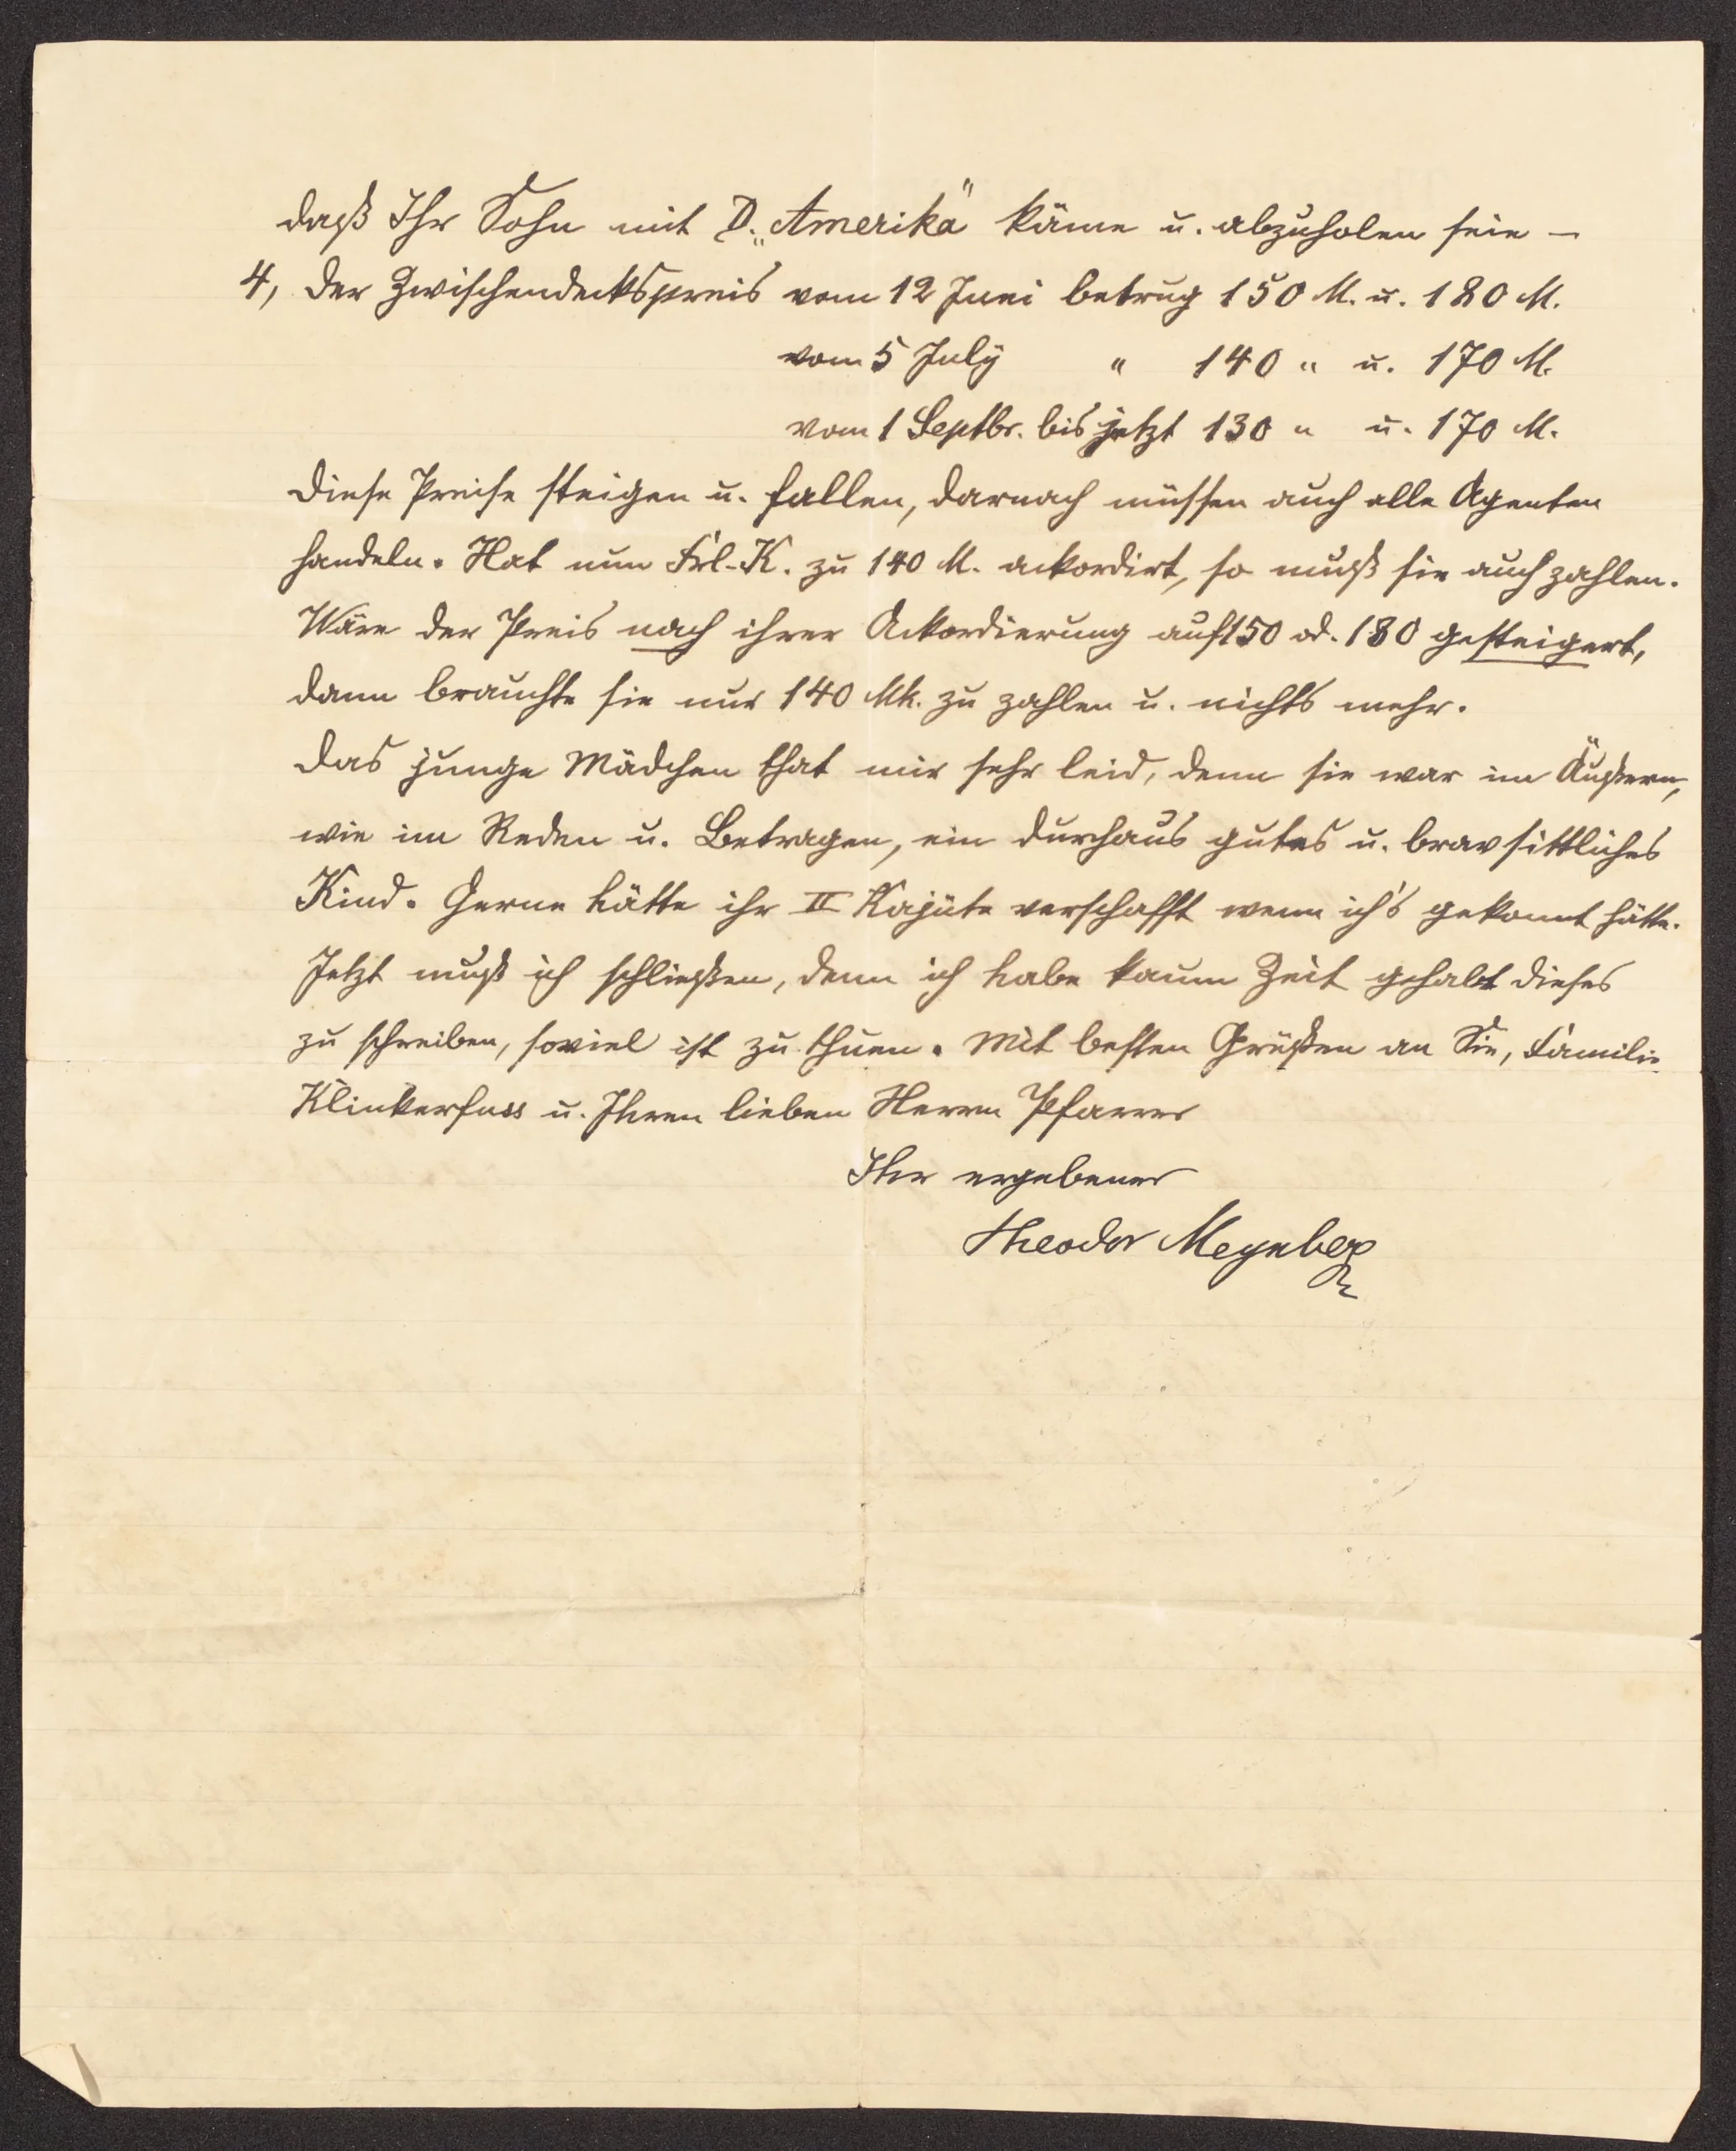 daß Ihr Sohn mit D. „Amerika" käme u. abzuholen seie —
4, Der Zwischendeckspreis vom 12 Juni betrug 150 M. u. 180 M.
vom 5 July " 140 " u. 170 M.
vom 1 Septbr. bis jetzt 130 " u. 170 M.
Diese Preise steigen u. fallen, darnach müssen auch alle Agenten
handeln. Hat nun Frl. K. zu 140 M. ackordirt, so muß sie auch zahlen.
Wäre der Preis nach ihrer Ackordierung auf 150 od. 180 gesteigert,
dann brauchte sie nur 140 Mk. zu zahlen u. nichts mehr.
Das junge Mädchen that mir sehr leid, denn sie war im Äußern,
wie im Reden u. Betragen, ein durchaus gutes u. brav sittliches
Kind. Gerne hätte ihr II Kajüte verschafft wenn ich's gekonnt hätte.
Jetzt muß ich schließen, denn ich habe kaum Zeit gehabt dieses
zu schreiben, soviel ist zu thuen. Mit besten Grüßen an Sie, Familie
Klinkerfuss u. Ihren lieben Herrn Pfarrer
Ihr ergebener
Theodor Meynberg